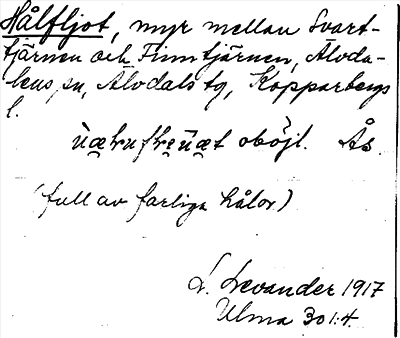 Hålfljot, myr mellan Svart-
tjärnen och Finntjärnen, Älvda-
lens sn, Älvdals tg, Kopparbergs
l.
oböjl. Ås.
(full av farliga hålor)
L. Levander 1917
Ulma 301:4.